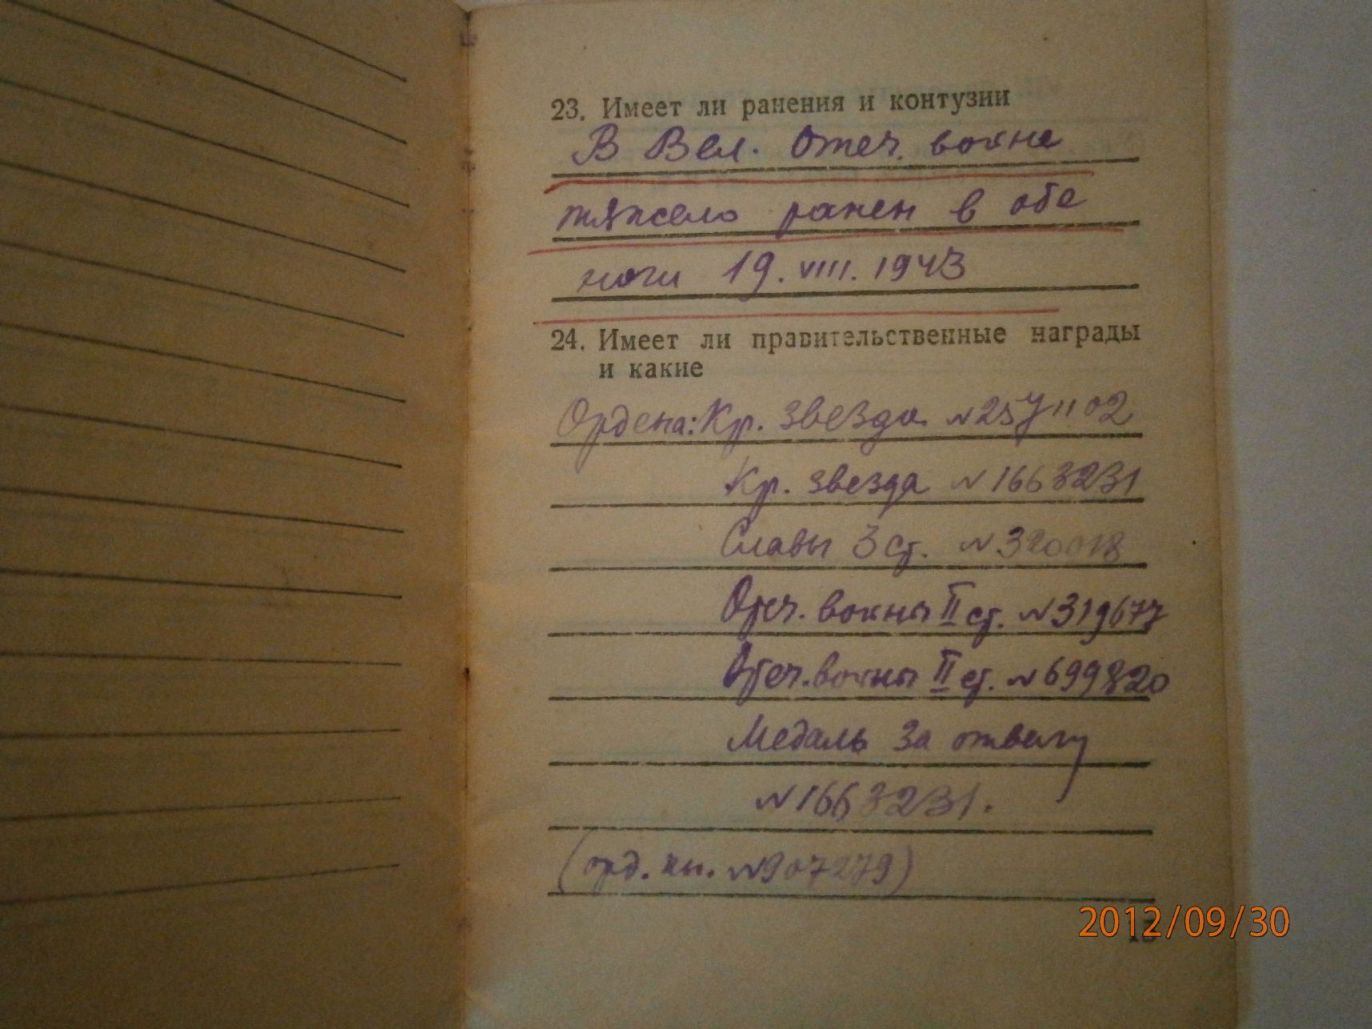 23. Имеет ли ранения и контузии
В Вел. Отеч. войне
тяжело ранен в обе
ноги 19. VIII. 1943
24. Имеет ли правительственные награды
и какие
Ордена: Кр. звезда N 2571102
Кр. звезда N 1668231
Славы 3 ст. N 320018
Отеч. войны II ст. N 319677
Отеч. войны II ст. N 699820
Медаль За отвагу
N 1668231.
(орд. кн. N 907279)
2012/09/30